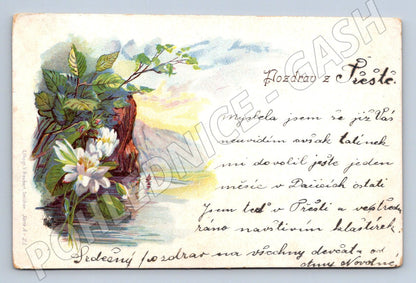 Pozdrav z Přeště.
Myslela jsem že již Vás
neuvidím avšak tatínek
mi dovolil ještě jeden
měsíc v Dačicích ostati
Jsem teď v Přešti a ve středu
ráno navštívím klášterek.
Srdečný pozdrav na všechny děvčata od
Novotné
POHLEDNICE - GASH